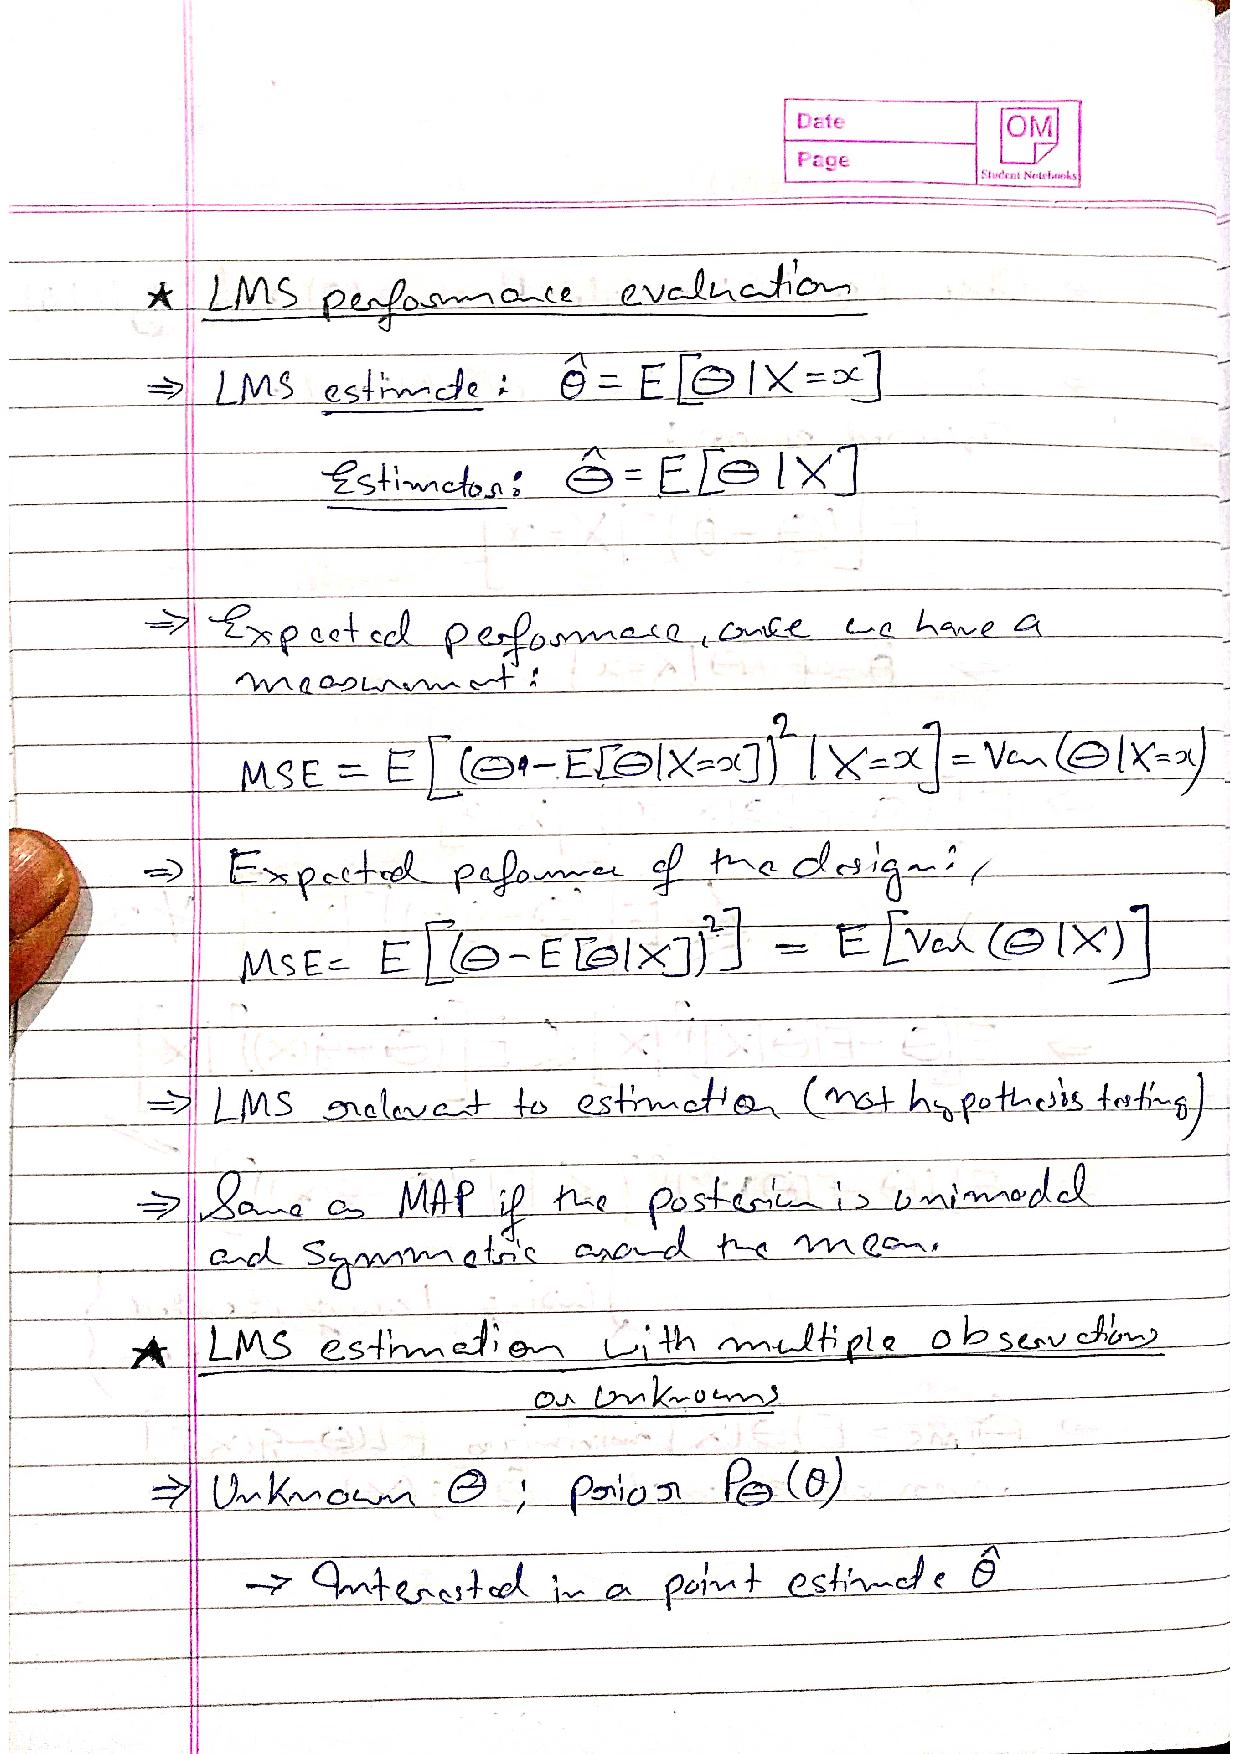 Date
Page
OM
Student Notebooks
★ LMS performance evaluation
⇒ LMS estimate: θ̂ = E[Θ|X=x]
Estimator: Θ̂ = E[Θ|X]
⇒ Expected performance, once we have a
measurement:
MSE = E[(Θ-E[Θ|X=x])² | X=x] = Var(Θ|X=x)
⇒ Expected performance of the design:
MSE = E[(Θ-E[Θ|X])²] = E[Var(Θ|X)]
⇒ LMS relevant to estimation (not hypothesis testing)
⇒ Same as MAP if the posterior is unimodal
and symmetric around the mean.
★ LMS estimation with multiple observations
or unknowns
⇒ Unknown Θ ; prior P_Θ(θ)
→ Interested in a point estimate θ̂